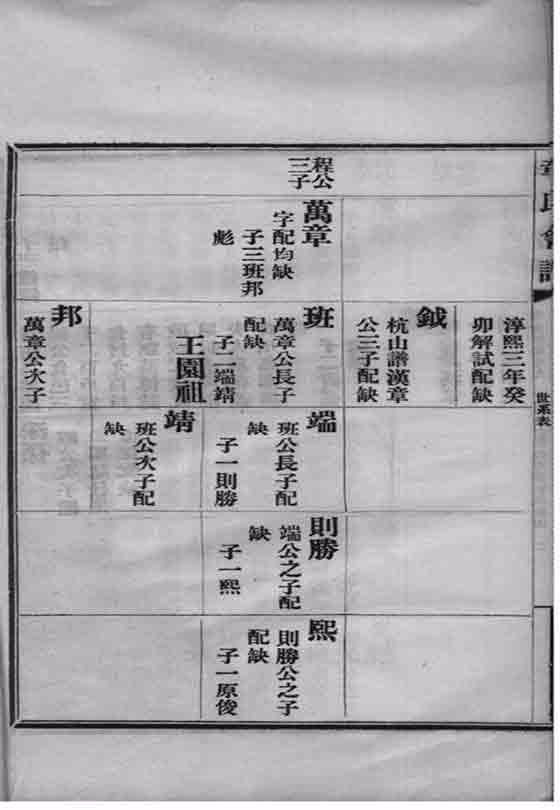 章氏會譜
世系表
程公
三子
萬章
字配均缺
子三班邦
彪
淳熙三年癸
卯解試配缺
鉞
杭山譜漢章
公三子配缺
班
萬章公長子
配缺
子二端靖
王園祖
邦
萬章公次子
端
班公長子配
缺
子一則勝
靖
班公次子配
缺
則勝
端公之子配
缺
子一熙
熙
則勝公之子
配缺
子一原俊